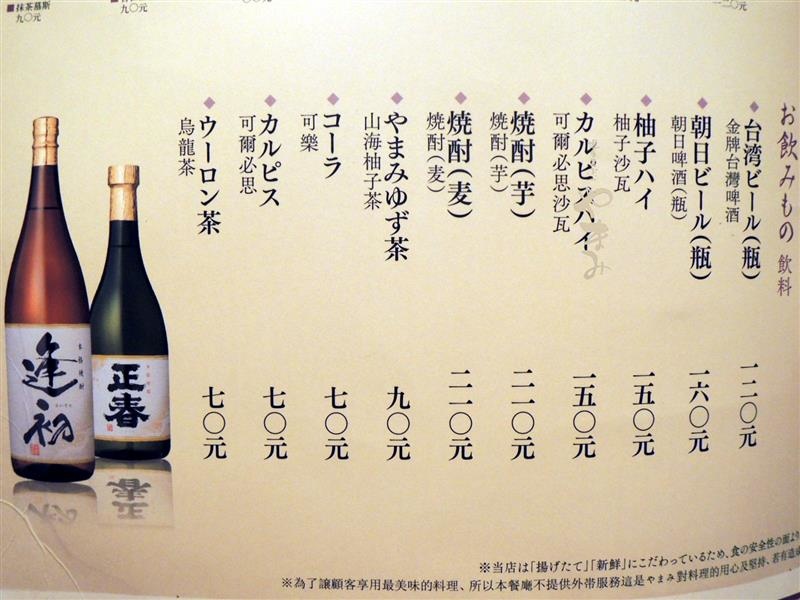 お飲みもの 飲料
台湾ビール(瓶)
金牌台灣啤酒
一二〇元
朝日ビール(瓶)
朝日啤酒(瓶)
一六〇元
柚子ハイ
柚子沙瓦
一五〇元
カルピスハイ
可爾必思沙瓦
一五〇元
焼酎(芋)
焼酎(芋)
二一〇元
焼酎(麦)
焼酎(麦)
二一〇元
やまみゆず茶
山海柚子茶
九〇元
コーラ
可樂
七〇元
カルピス
可爾必思
七〇元
ウーロン茶
烏龍茶
七〇元
やまみ
■抹茶慕斯
九〇元
九〇元
一二〇元
本格焼酎
逢初
正春
※当店は「揚げたて」「新鮮」にこだわっているため、食の安全性の面より
※為了讓顧客享用最美味的料理、所以本餐廳不提供外帶服務這是やまみ對料理的用心及堅持、若有造成